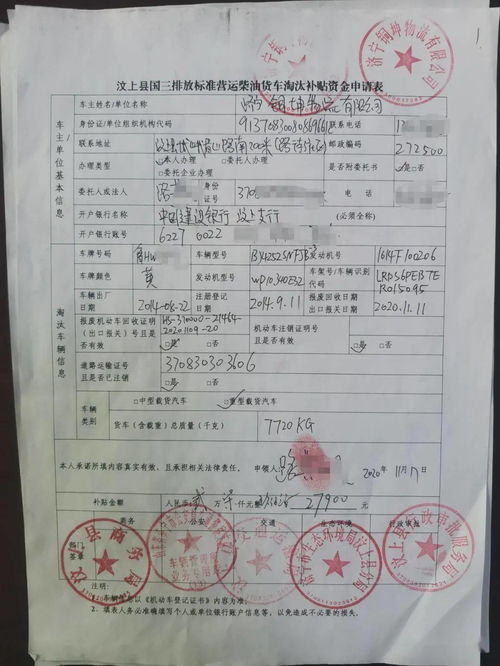 汶上县国三排放标准营运柴油货车淘汰补贴资金申请表
车主姓名/单位名称 济宁铜坤物流有限公司
身份证/单位组织机构代码 联系电话
联系地址 邮政编码 272500
办理类型 □本人办理 □委托人办理 □委托企业办理 是否附委托书 □是 □否
委托人或法人 路 身份证号 370 电话
开户银行名称 中国建设银行 汶上支行 (必须全称)
开户银行账号 6227 0022
车主/单位基本信息
车牌号码 鲁HW 车辆型号 发动机号 1614F100206
车牌颜色 黄 发动机型号 WP10.340E32 车架号/车辆识别代码
车辆出厂日期 2014-08-22 注册登记日期 2014.9.11 报废回收日期 出口报关日期 2020.11.11
报废机动车回收证明(出口报关)号且是否有效 □是 □否 机动车注销证明号且是否有效
道路运输证号且是否已注销 370830303606 □是 □否
淘汰车辆信息
车辆类别 □中型载货汽车 □重型载货汽车
货车(含载重)总质量(千克) 7720KG
本人承诺所填内容真实有效,且承担相关法律责任。 申领人: 路 2020 11月 日
补贴金额 人民币: 贰 万 柒 仟元整 27900
部门签章 商务 公安 交通 生态环境 行政审批
注明:
1、车辆信息以《机动车登记证书》内容为准;
2、填表人务必准确填写个人或单位银行账户信息等,以免造成不必要的损失。
济宁铜坤物流有限公司
汶上县商务局
济宁市生态环境局汶上县分局
汶上县行政审批服务局